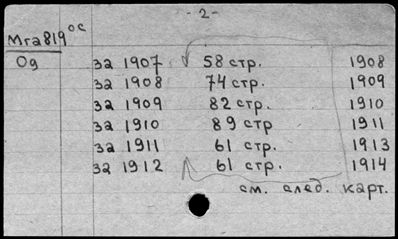 - 2 -
Мга819 ос
Од
за 1907 58 стр. 1908
за 1908 74 стр. 1909
за 1909 82 стр. 1910
за 1910 89 стр 1911
за 1911 61 стр. 1913
за 1912 61 стр. 1914
см. след. карт.